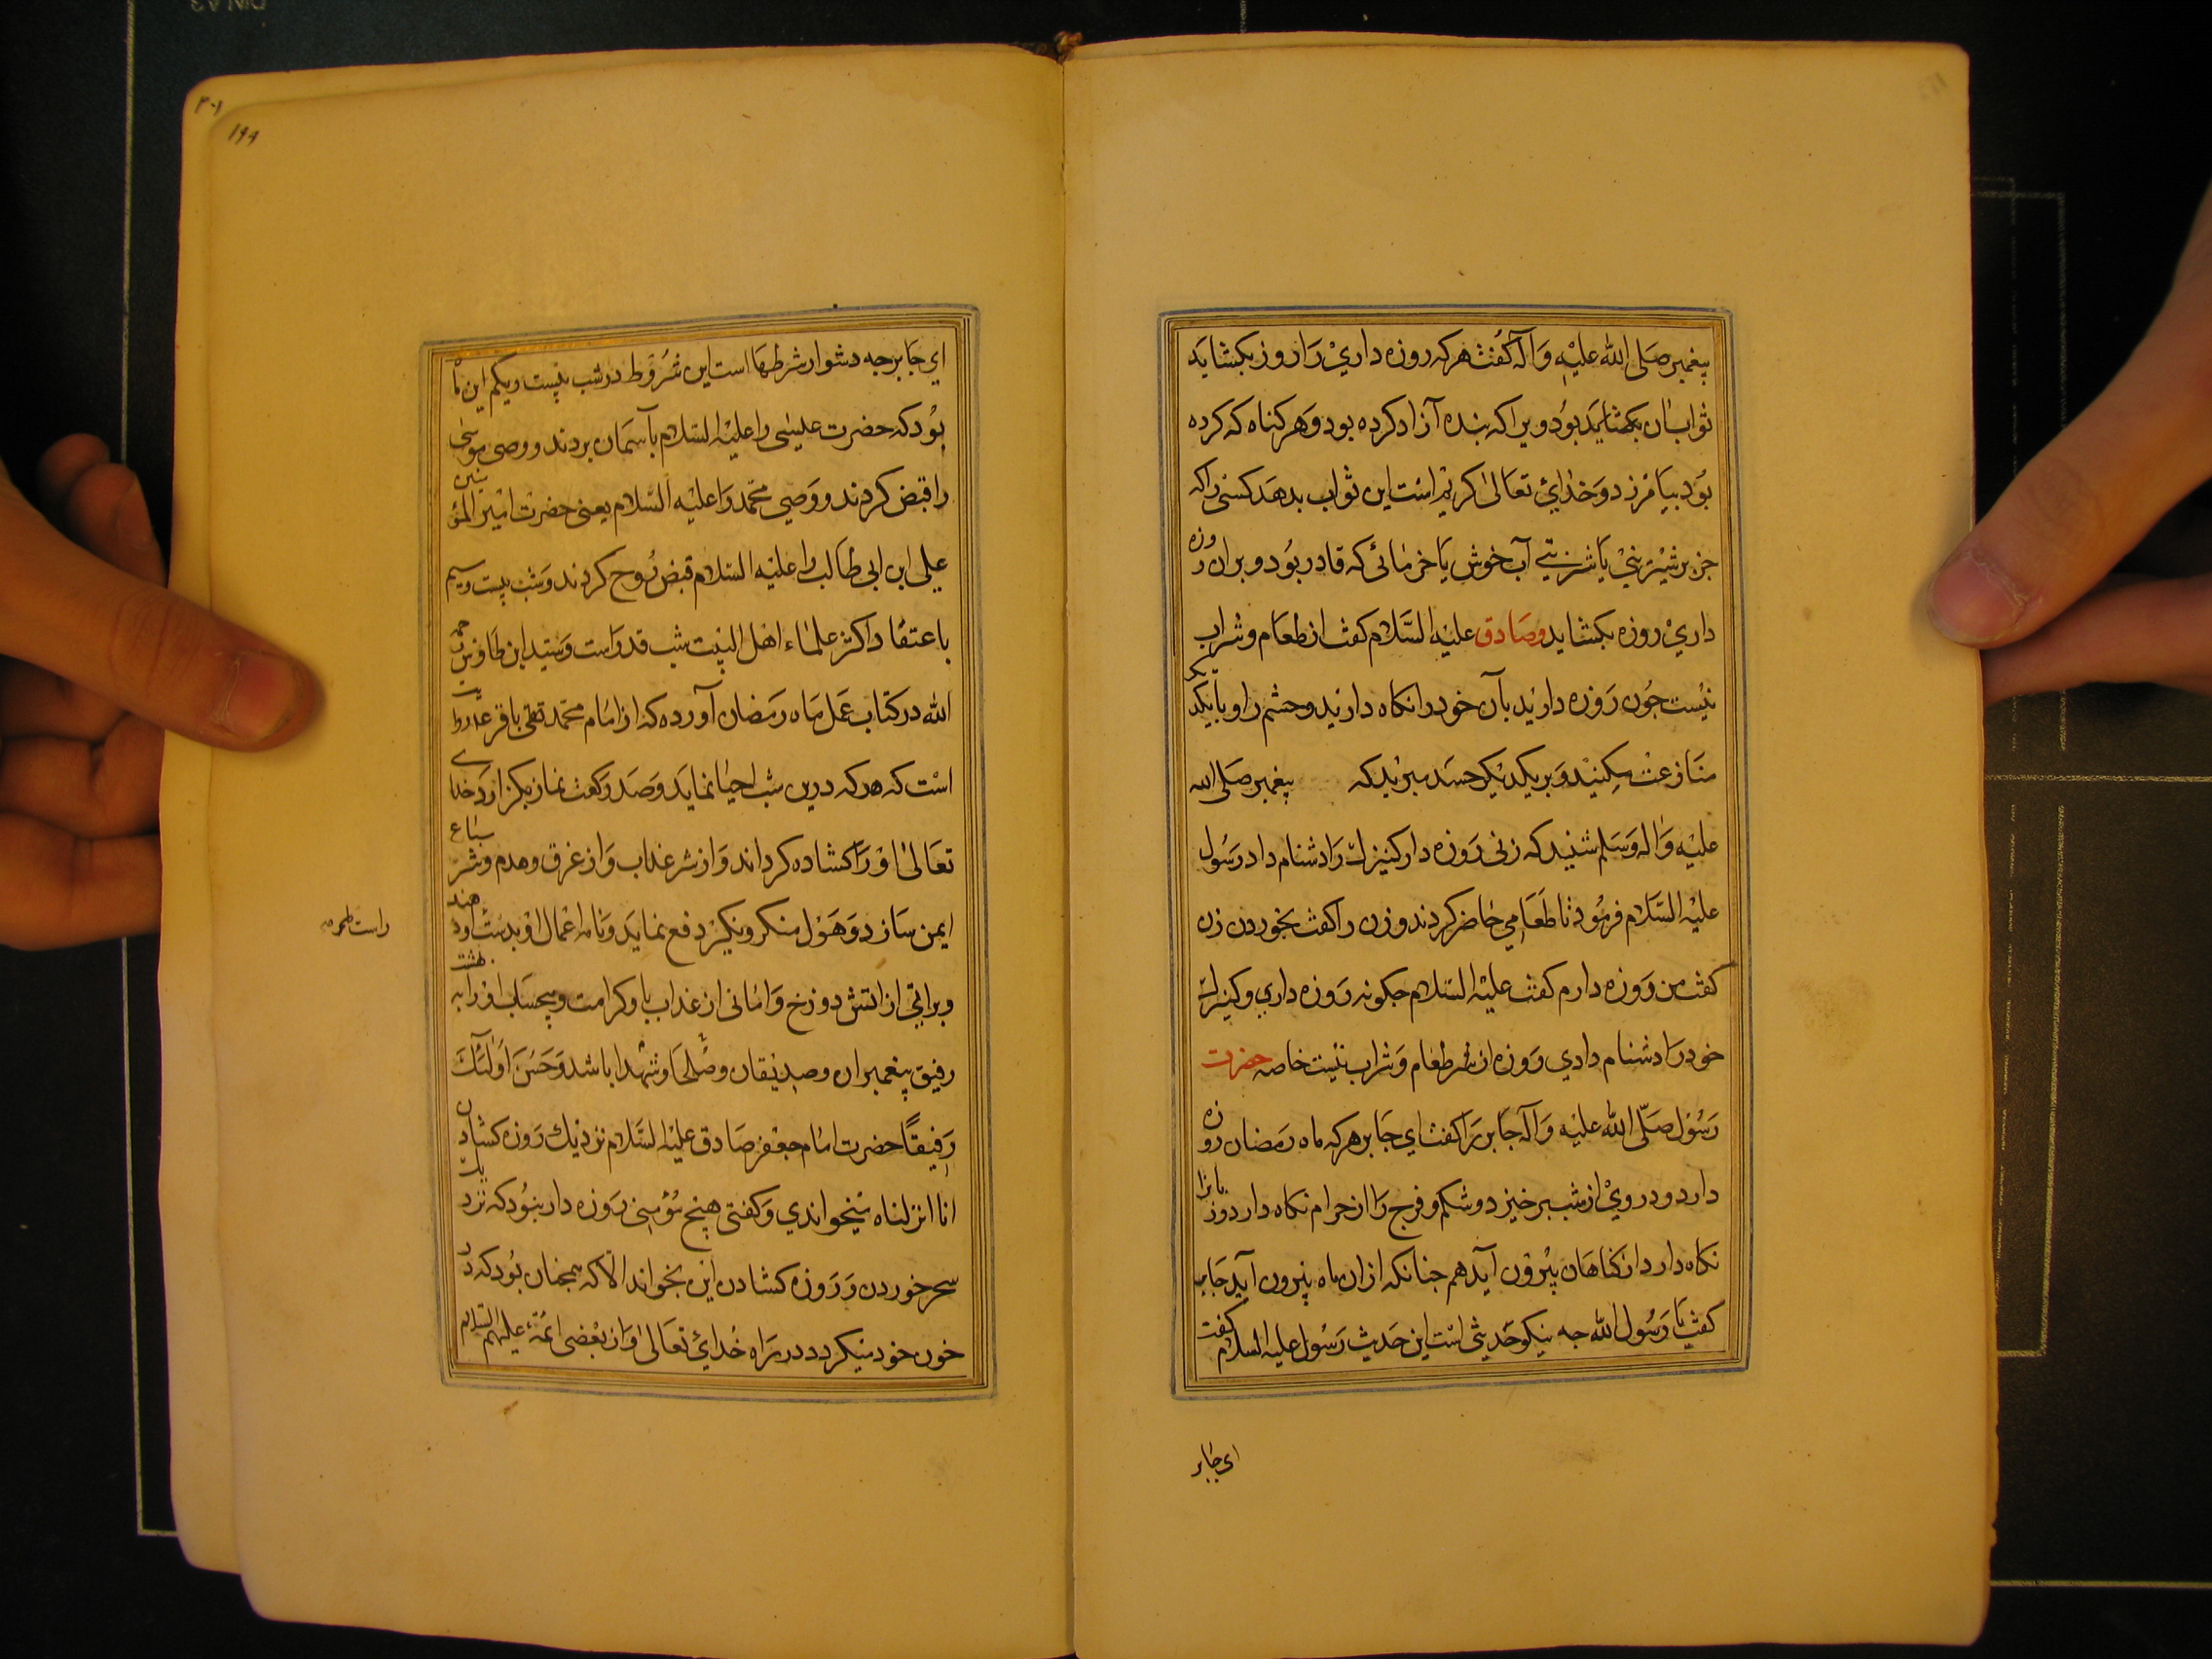 پیغمبر صلی الله علیه وآله گفت هر که روزه داری را روزه بکشاید
ثواب آن بود ویرا که بنده آزاد کرده بود و هر کناه که کرده
بود بیامرزد و خدای تعالی کریم است این ثواب بدهد کسی را که
جز بر شیرینی یا شربتی آب خوش یا خرمائی که قادر بود و بران روزه
داری روزه بکشاید و صادق علیه السلام کفت از طعام و شراب
نیست جون روزه دارید بآن خود را نکاه دارید و جشم را و با یکدیکر
منازعت مکنید و بر یکدیکر حسد مبرید که پیغمبر صلی الله
علیه واله وسلم شنید که زنی روزه دار کنیزك را دشنام داد رسول
علیه السلام فرمود تا طعامی حاضر کردند و زن را کفت بخور دن زن
کفت من روزه دارم کفت علیه السلام جکونه روزه داری و کنیزك
خود را دشنام دادی روزه از شر طعام و شراب نیست خاصه حضرت
رسول صلی الله علیه وآله جابر را کفت ای جابر هر که ماه رمضان روزه
دارد و در وی از شب برخیزد و شکم و فرج را از حرام نکاه دارد و زبانرا
نکاه دارد از کناهان بیرون آید هم جنانکه ازان ماه بیرون آید جابر
کفت یا رسول الله جه نیکو حدیثی است این حدیث رسول علیه السلام کفت
ای جابر
۲۰۱
۱۹۹
ای جابر جه دشوار شرطها است این شروط در شب بیست و یکم این ماه
بود که حضرت عیسی را علیه السلام بآسمان بردند و وصی موسی
را قبض کردند و وصی محمد را علیه السلام یعنی حضرت امیر المؤمنین
علی ابن ابی طالب را علیه السلام قبض روح کردند و شب بیست و سیم
باعتقاد اکثر علماء اهل البیت شب قدر است و سید ابن طاوس رحمه
الله در کتاب عمل ماه رمضان آورده که از امام محمد تقی باقر ع روایت
است که هر که درین شب احیا نماید و صد رکعت نماز بکزارد خدای
تعالی اور را کشاده کرداند و از شر عذاب و از غرق و هدم و شر سباع
ایمن سازد و هول منکر و نکیر دفع نماید و نامه اعمال او بدست او دهند
و براتی از اتش دوزخ و امانی از عذاب با و کرامت و بیحساب اورا به بهشت
رفیق پیغمبران و صدیقان و صلحا و شهدا باشد و حسن اولئك
رفیقا حضرت امام جعفر صادق علیه السلام نزدیك روزه کشادن
انا انزلناه میخواندی و کفتی هیچ مؤمنی روزه دار نبود که نزدیك
سحر خوردن و روزه کشادن این بخواند الا که همجنان بود که در
خون خود میکردد در راه خدای تعالی و از بعضی ائمه علیهم السلام